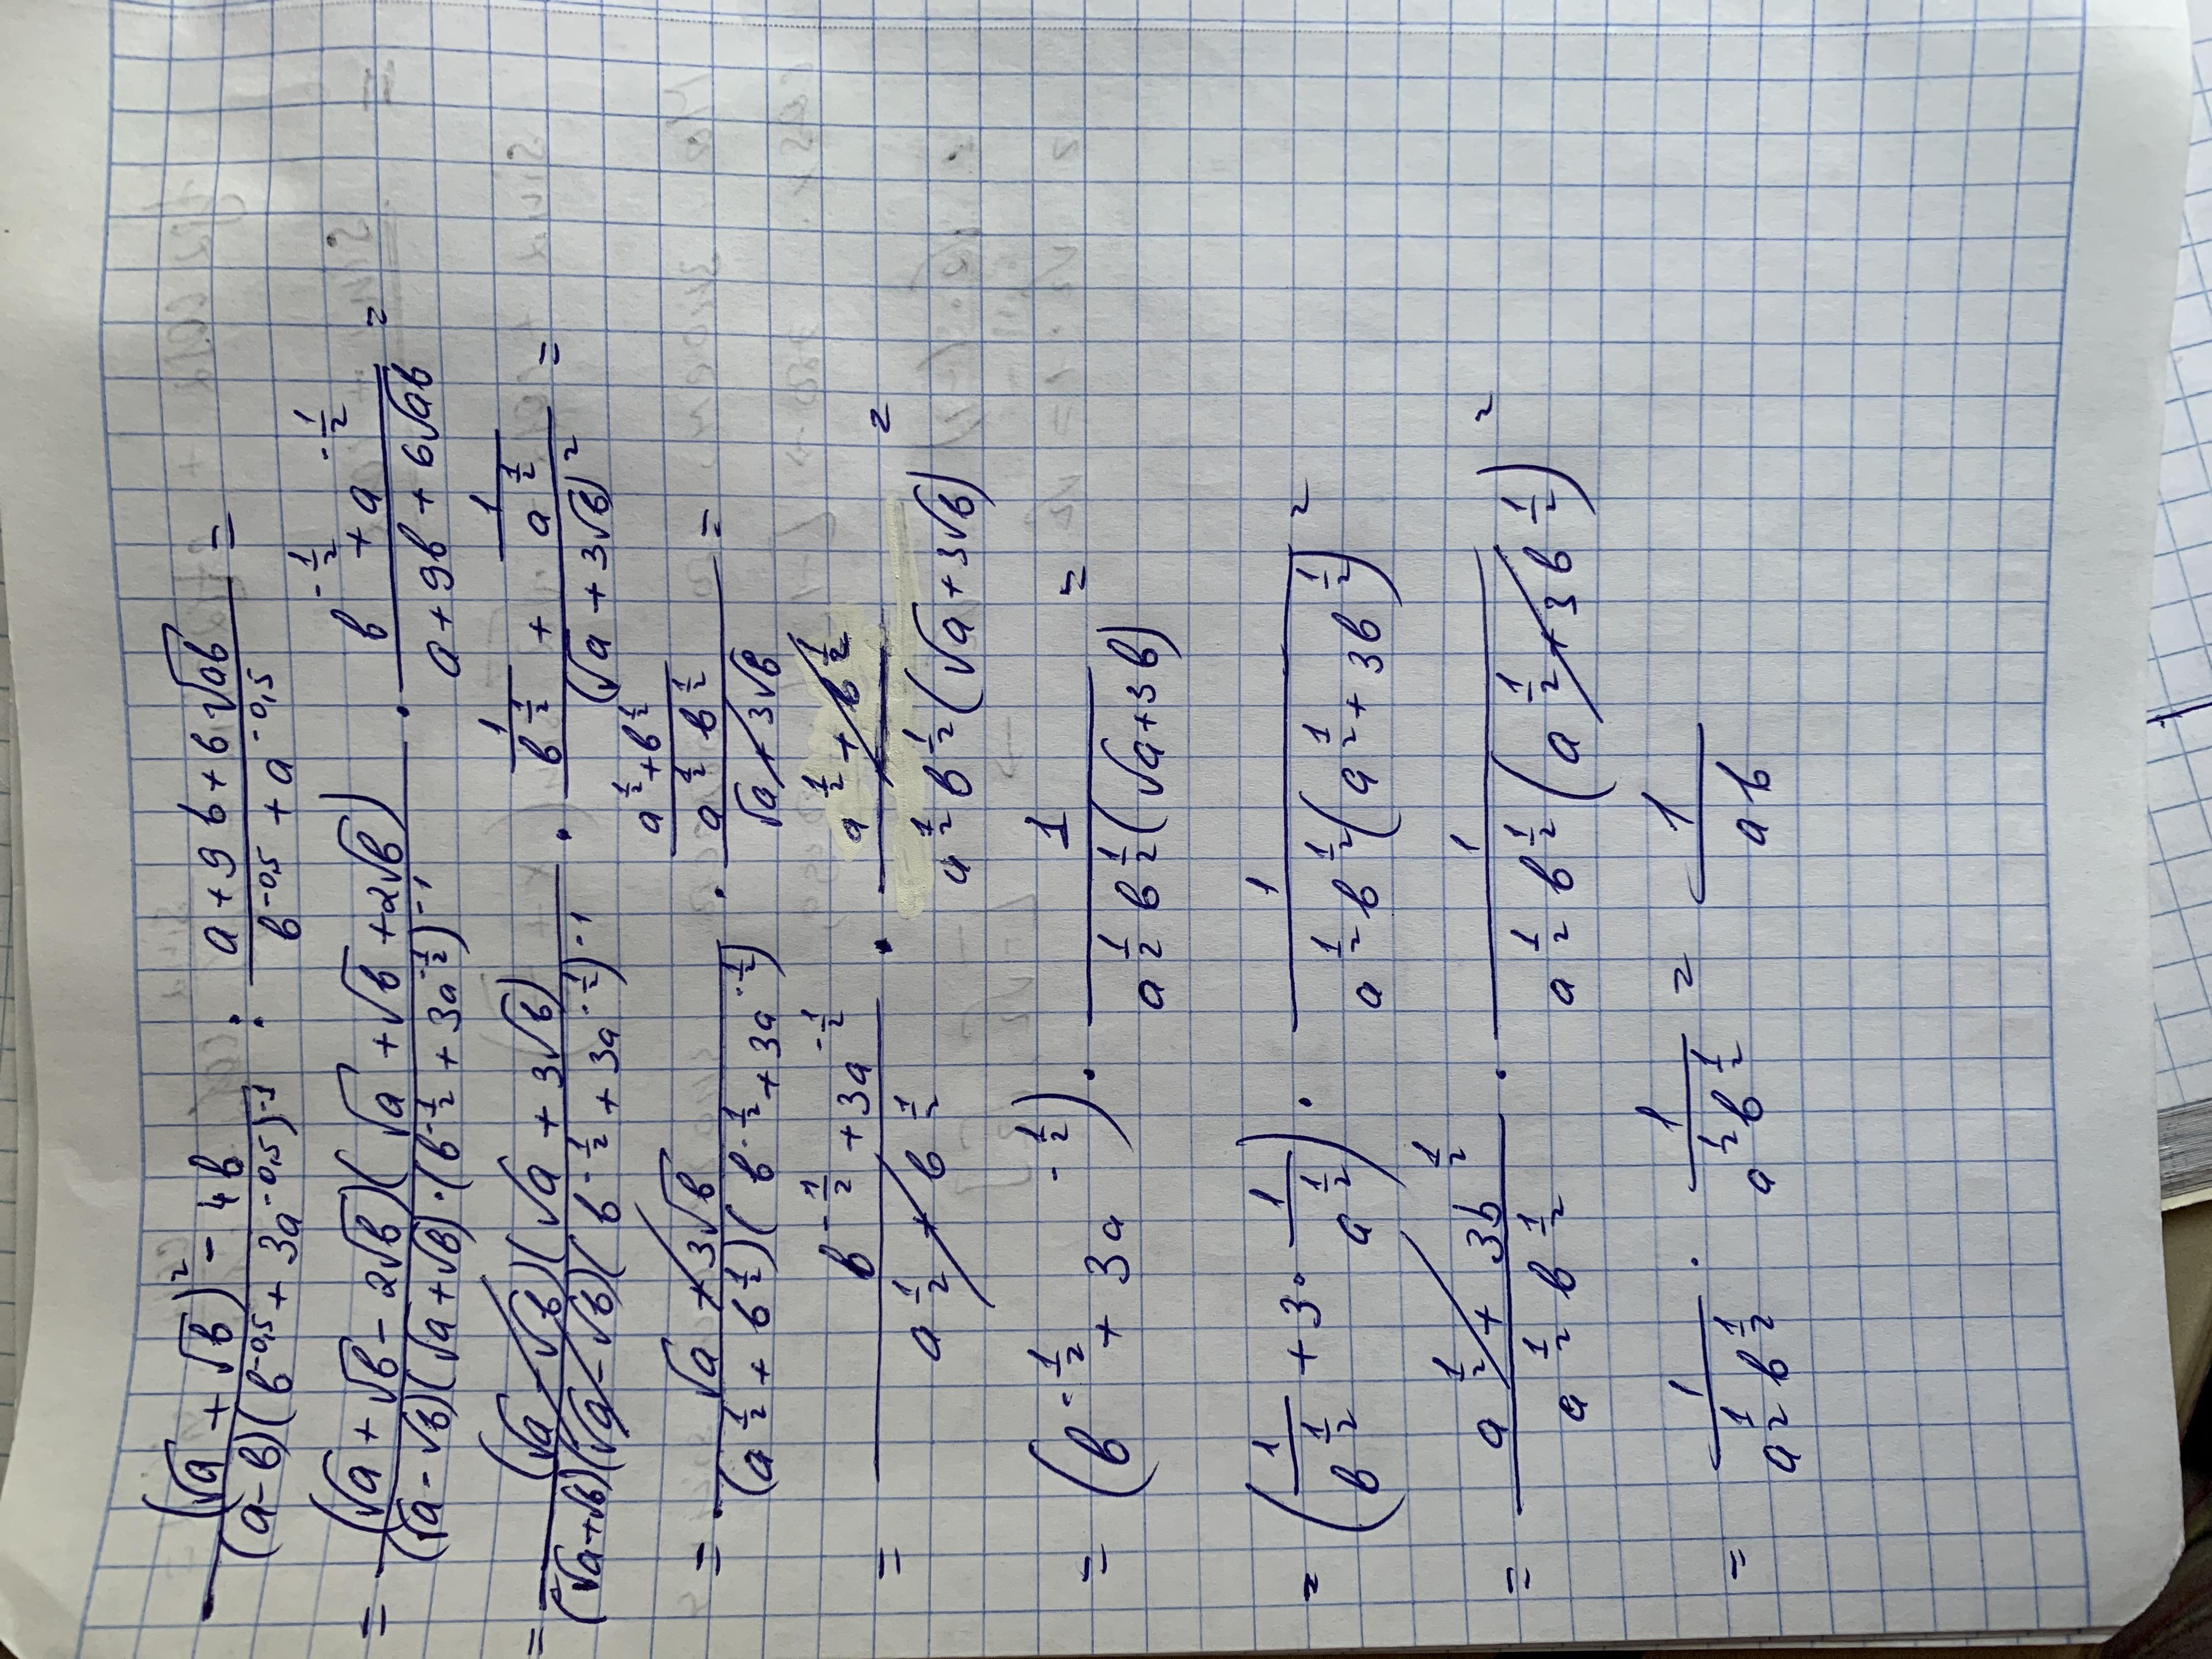 ((√a + √b)² - 4b) / ((a - b)(b^-0,5 + 3a^-0,5)^-1) : (a + 9b + 6√ab) / (b^-0,5 + a^-0,5) =
= ((√a + √b - 2√b)(√a + √b + 2√b)) / ((√a - √b)(√a + √b)·(b^-1/2 + 3a^-1/2)^-1) · (b^-1/2 + a^-1/2) / (a + 9b + 6√ab) =
= ((√a - √b)(√a + 3√b)) / ((√a + √b)(√a - √b)(b^-1/2 + 3a^-1/2)^-1) · (1/b^1/2 + 1/a^1/2) / (√a + 3√b)² =
= (√a + 3√b) / ((a^1/2 + b^1/2)(b^-1/2 + 3a^-1/2)) · ((a^1/2 + b^1/2) / (a^1/2 b^1/2)) / (√a + 3√b) =
= (b^-1/2 + 3a^-1/2) / (a^1/2 + b^1/2) · (a^1/2 + b^1/2) / (a^1/2 b^1/2 (√a + 3√b)) =
= (b^-1/2 + 3a^-1/2) · 1 / (a^1/2 b^1/2 (√a + 3b)) =
= (1/b^1/2 + 3·1/a^1/2) · 1 / (a^1/2 b^1/2 (a^1/2 + 3b^1/2)) =
= (a^1/2 + 3b^1/2) / (a^1/2 b^1/2) · 1 / (a^1/2 b^1/2 (a^1/2 + 3b^1/2)) =
= 1 / (a^1/2 b^1/2) · 1 / (a^1/2 b^1/2) = 1 / ab